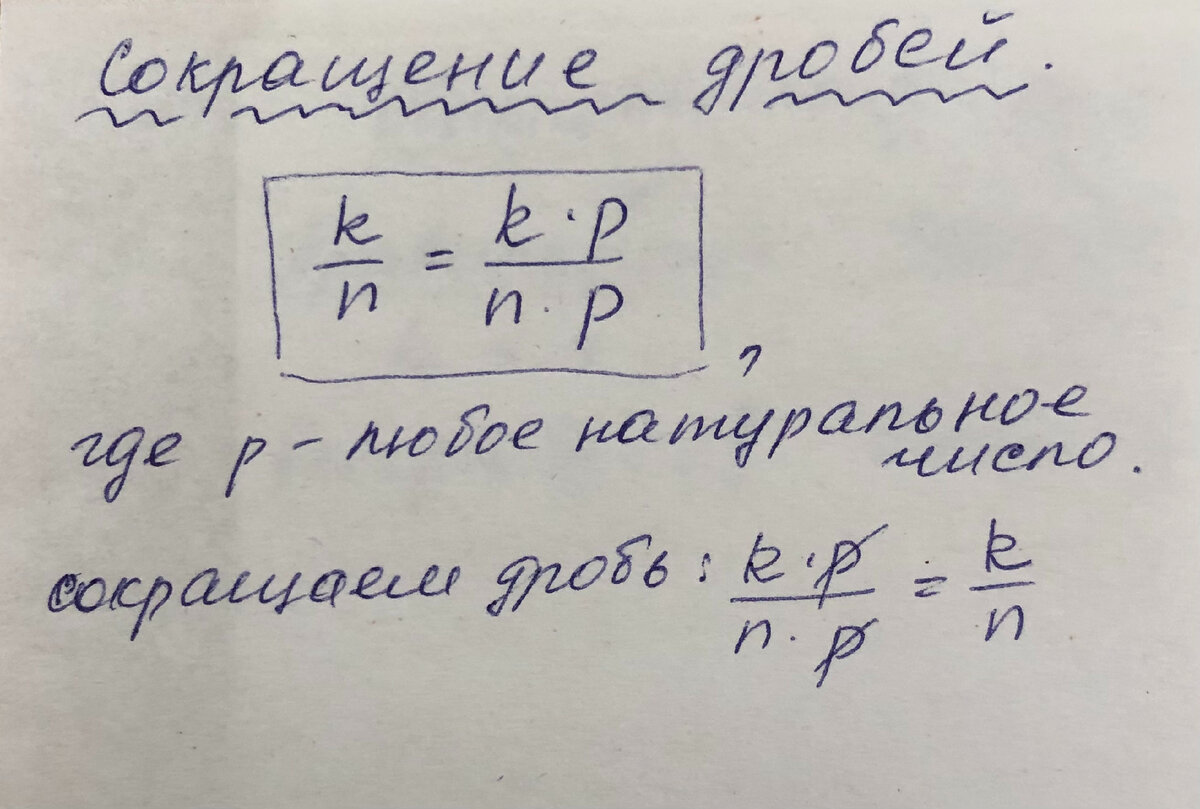 Сокращение дробей.
k/n = k · p / n · p ,
где p – любое натуральное
число.
сокращаем дробь: k · p / n · p = k/n